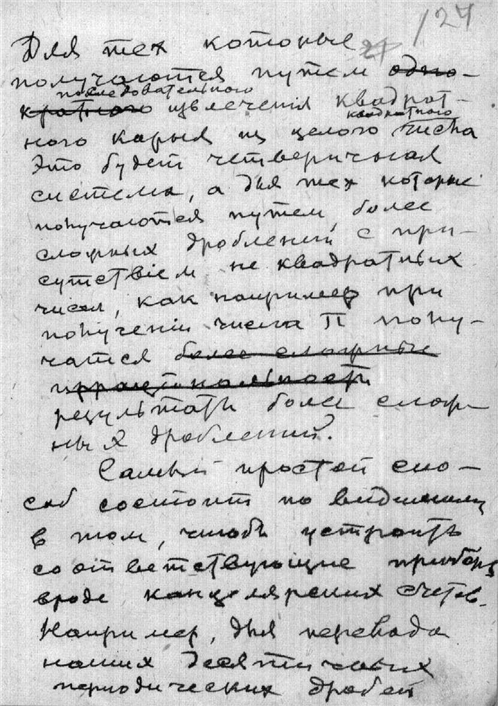 127
Для тех которые
получаются путем одно-
последовательного
кратного извлечения квадрат-
квадратного
ного карня из целого числа
Это будет четверичная
система, а для тех которые
получаются путем, более
сложных дроблений с при-
сутствіем не квадратных
чисел, как например при
полученіи числа П полу-
чатся более сложные
иррациональности
результаты более слож-
ных дроблений?
Самый простой спо-
соб состоит по видимому
в том, чтобы устроить
соответствующие приборы
вроде канцелярских счетов.
Например, для перевода
наших десятичных
периодических дробей